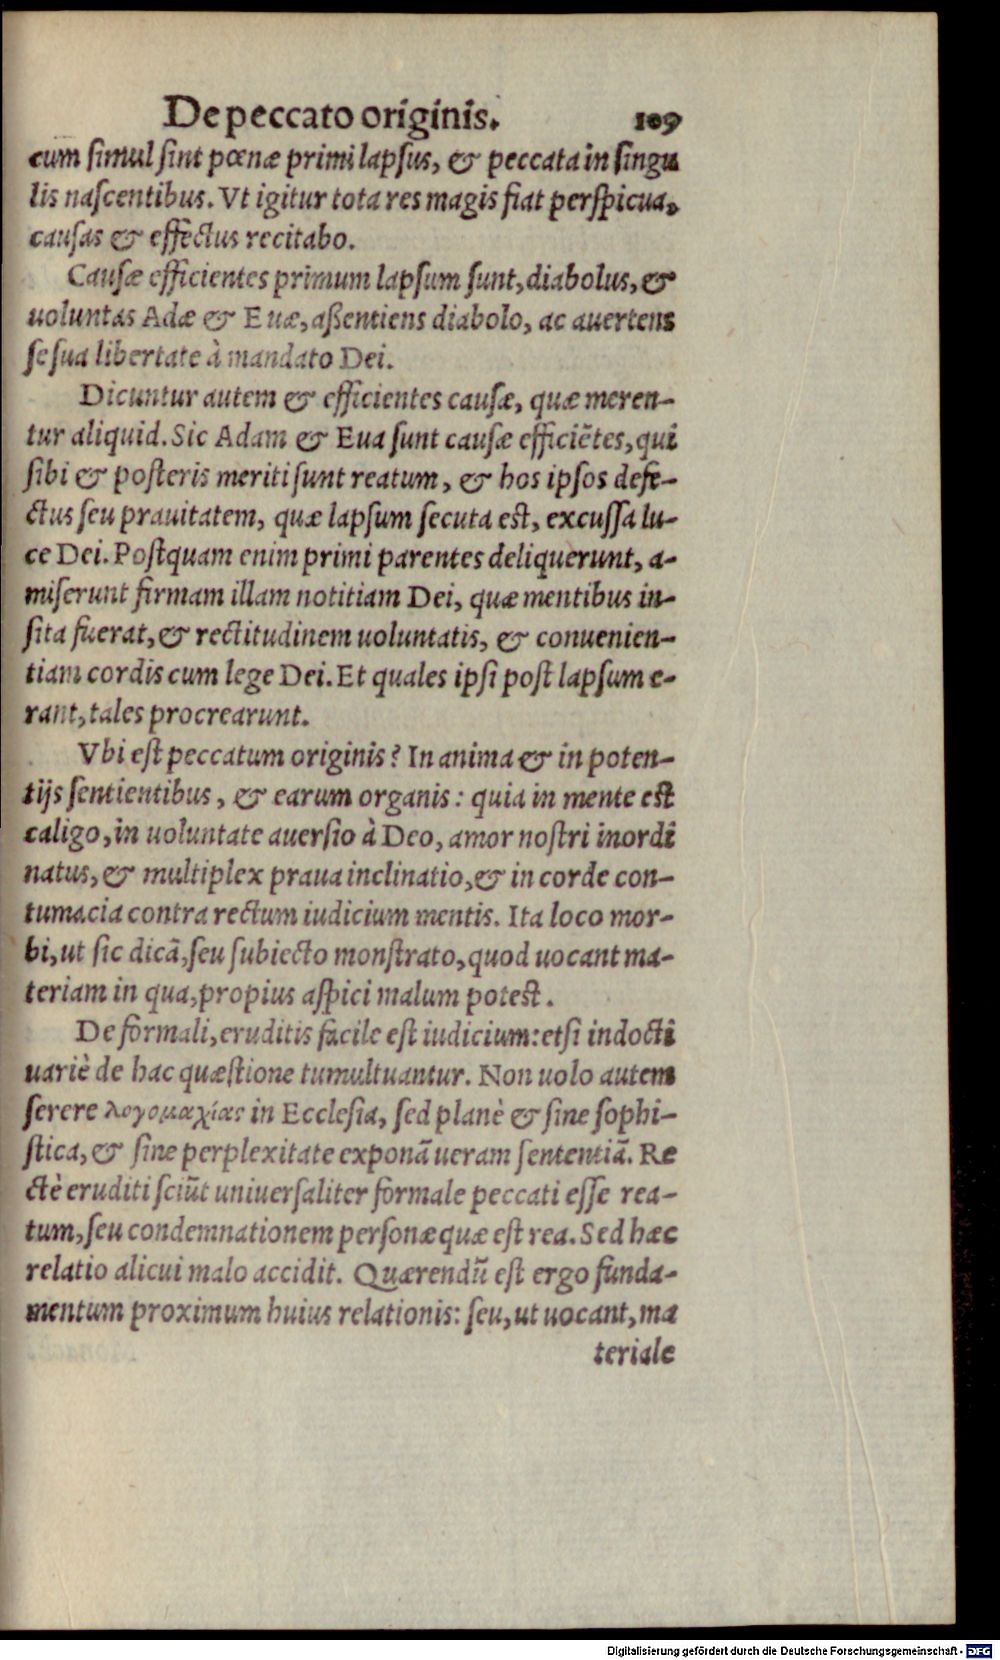 De peccato originis. 109
cum simul sint pœnæ primi lapsus, & peccata in singu
lis nascentibus. Vt igitur tota res magis fiat perspicua,
causas & effectus recitabo.
Causæ efficientes primum lapsum sunt, diabolus, &
uoluntas Adæ & Euæ, aßentiens diabolo, ac auertens
se sua libertate à mandato Dei.
Dicuntur autem & efficientes causæ, quæ meren-
tur aliquid. Sic Adam & Eua sunt causæ efficiẽtes, qui
sibi & posteris meriti sunt reatum, & hos ipsos defe-
ctus seu prauitatem, quæ lapsum secuta est, excussa lu-
ce Dei. Postquam enim primi parentes deliquerunt, a-
miserunt firmam illam notitiam Dei, quæ mentibus in-
sita fuerat, & rectitudinem uoluntatis, & conuenien-
tiam cordis cum lege Dei. Et quales ipsi post lapsum e-
rant, tales procrearunt.
Vbi est peccatum originis? In anima & in poten-
tijs sentientibus, & earum organis: quia in mente est
caligo, in uoluntate auersio à Deo, amor nostri inordi
natus, & multiplex praua inclinatio, & in corde con-
tumacia contra rectum iudicium mentis. Ita loco mor-
bi, ut sic dicã, seu subiecto monstrato, quod uocant ma-
teriam in qua, propius aspici malum potest.
De formali, eruditis facile est iudicium: etsi indocti
uariè de hac quæstione tumultuantur. Non uolo autem
serere λογομαχίας in Ecclesia, sed planè & sine sophi-
stica, & sine perplexitate exponã ueram sententiã. Re
ctè eruditi sciũt uniuersaliter formale peccati esse rea-
tum, seu condemnationem personæ quæ est rea. Sed hæc
relatio alicui malo accidit. Quærendũ est ergo funda-
mentum proximum huius relationis: seu, ut uocant, ma
teriale
Digitalisierung gefördert durch die Deutsche Forschungsgemeinschaft - DFG